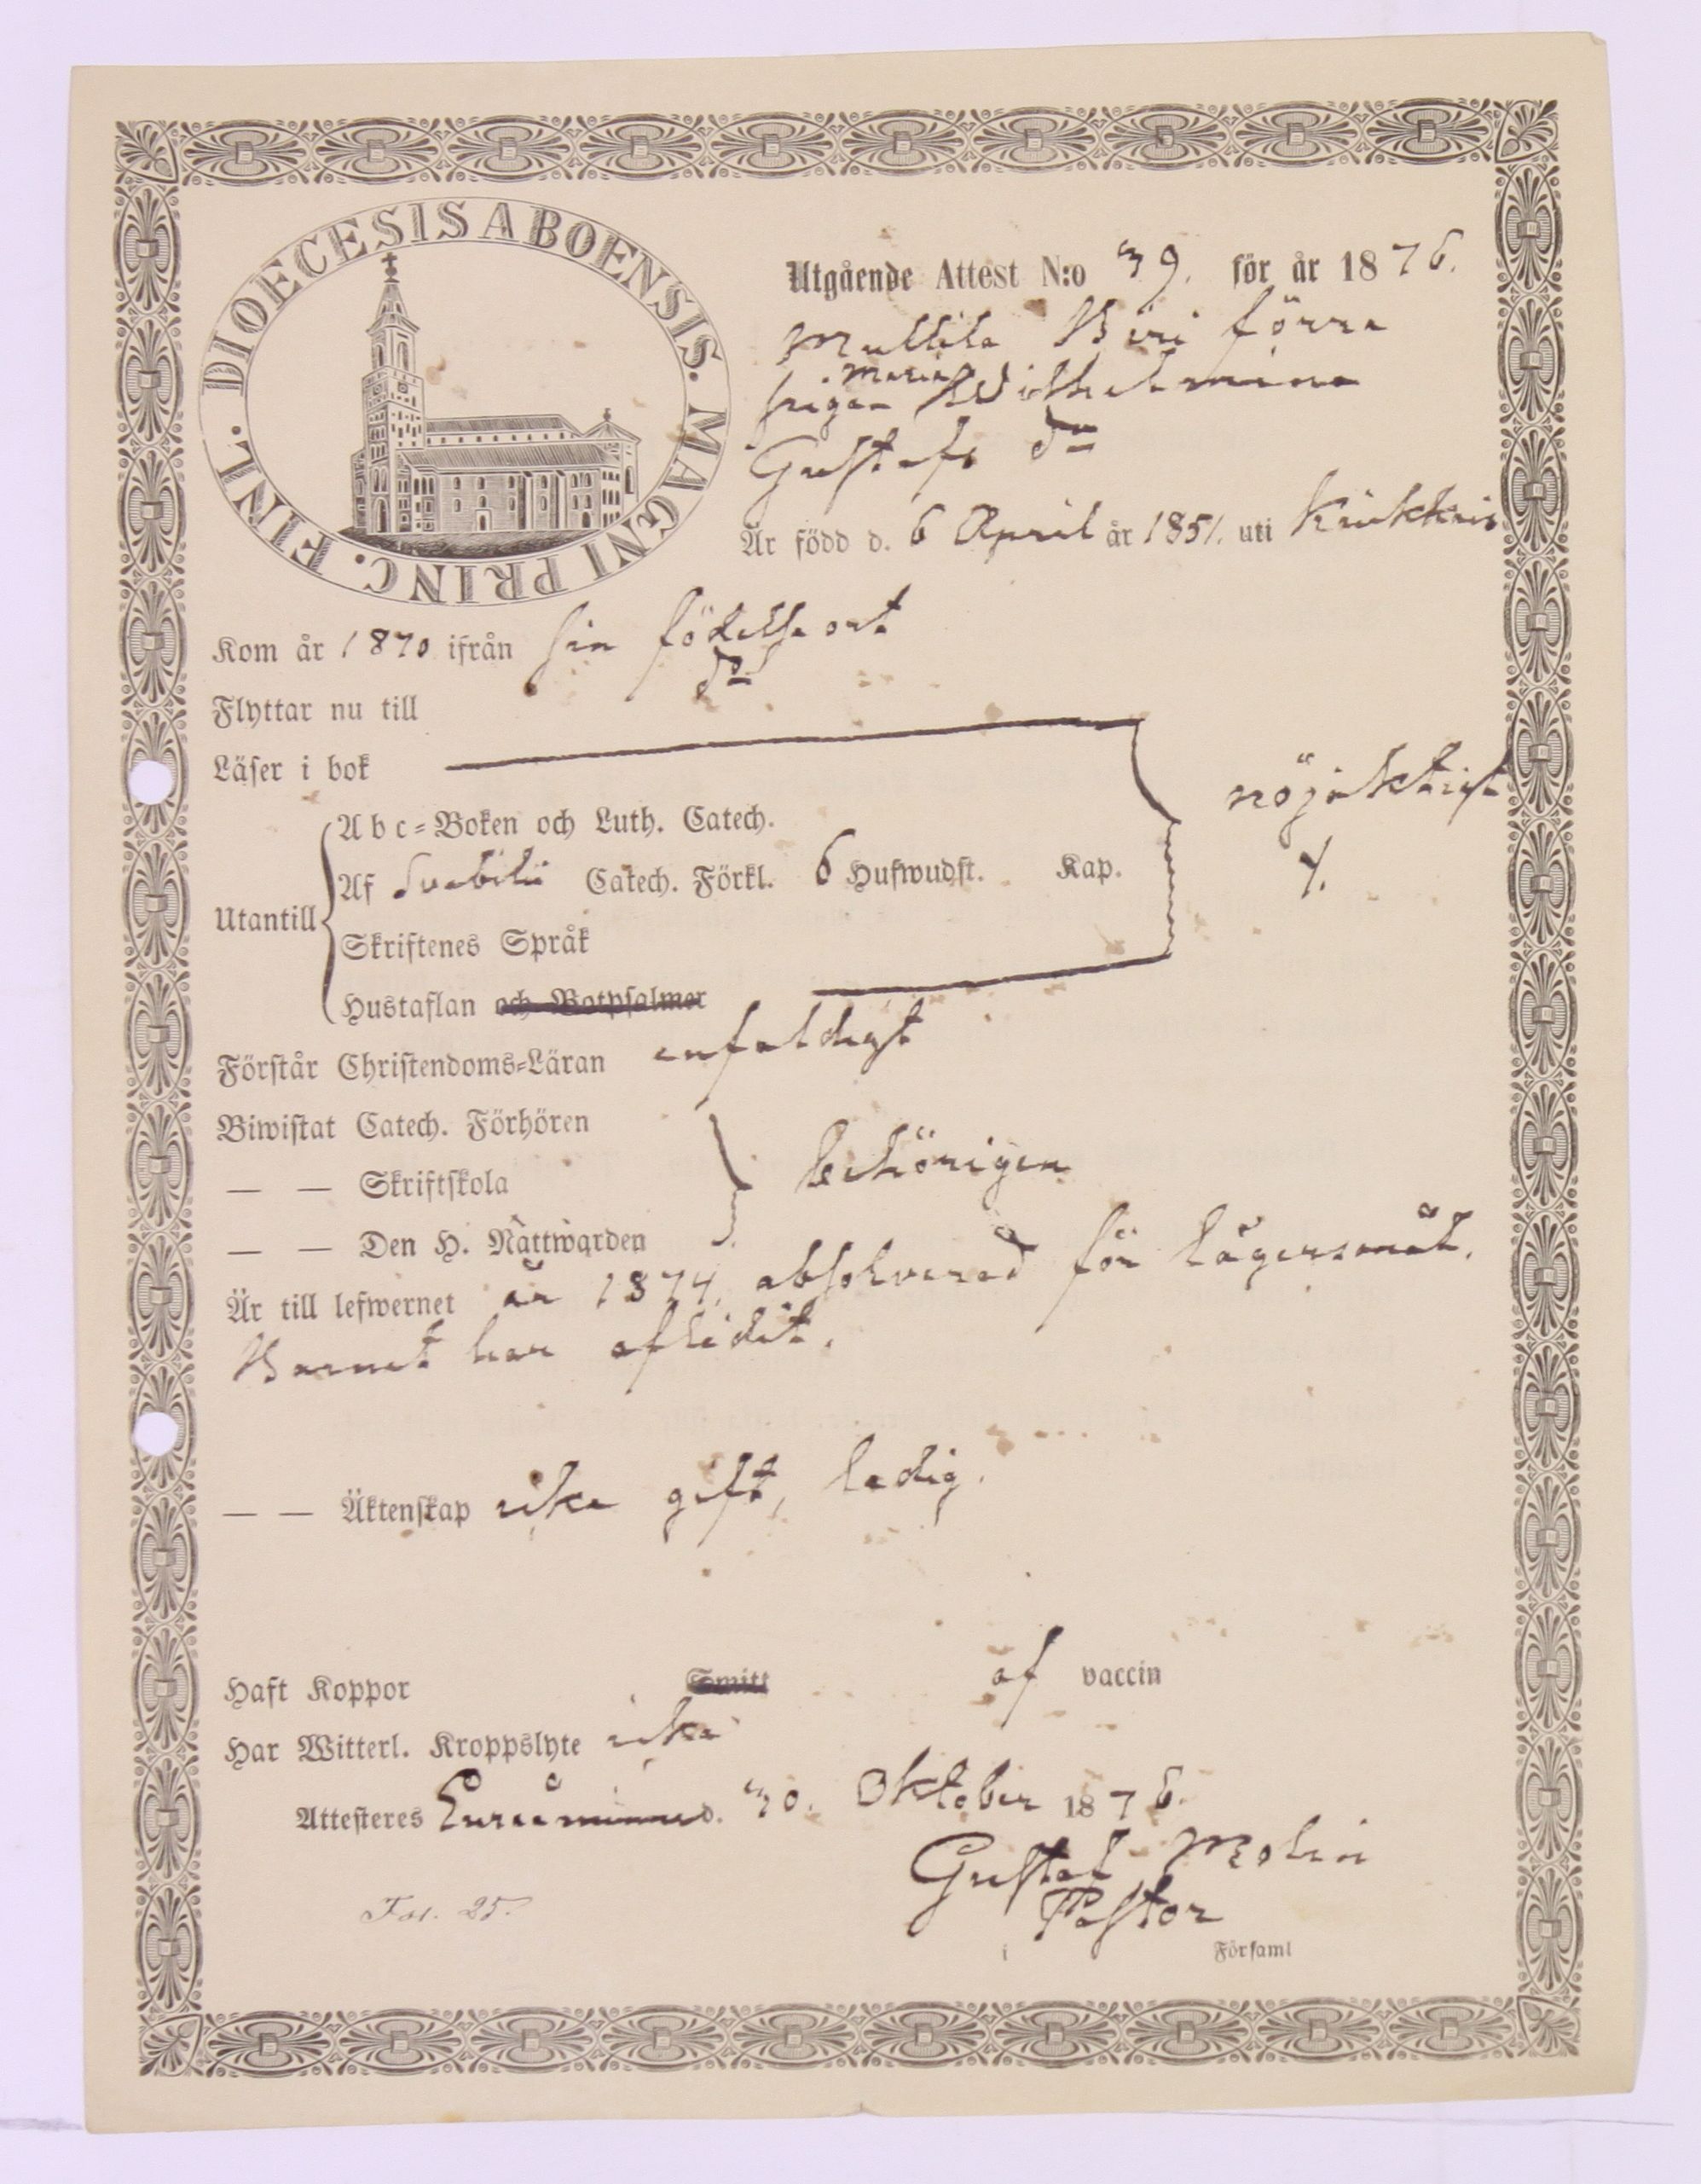 DIOECESIS ABOENSIS. MAGNI PRINC. FINL.
Utgående Attest N:o 39. för år 1876.
Mullila Büri förra
Maria
pigan Wilhelmina
Gustafs dr
Är född d. 6 April år 1851. uti Kiukkais
Kom år 1870 ifrån sin födelseort
Flyttar nu till do
Läser i bok
nöjaktigt
Abc-Boken och Luth. Catech.
Utantill Af Svebilii Catech. Förkl. 6 Hufwudst. Kap.
Skriftenes Språk
Hustaflan och Botpsalmer
Förstår Christendoms-Läran enfaldigt
Biwistat Catech. Förhören
— — Skriftskola behörigen
— — Den H. Nattwarden
Är till lefwernet år 1874, absolverad för lägersmål.
Barnet har aflidit.
— — Äktenskap icke gift, ledig.
Haft Koppor Smitt af vaccin
Har Witterl. Kroppslyte icke
Attesteres Euraåminne d. 30. Oktober 1876.
Gustaf Molin
Pastor
i Församl
Fol. 25.